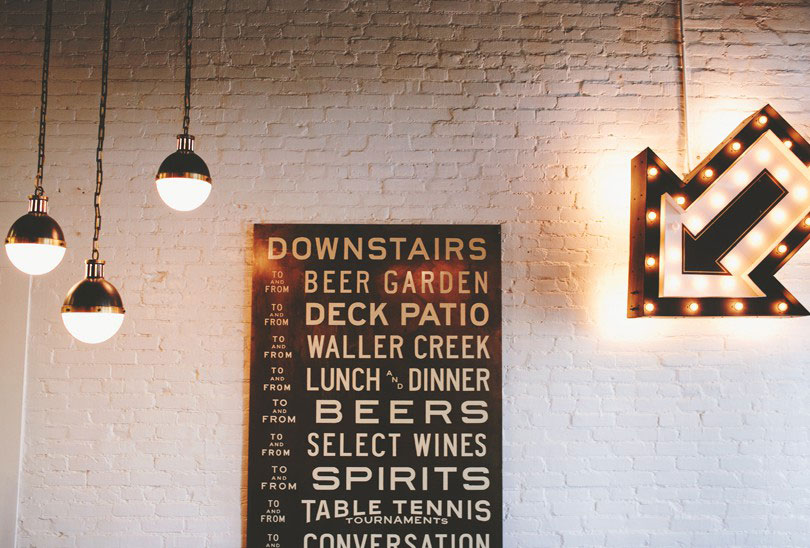 DOWNSTAIRS
TO AND FROM BEER GARDEN
TO AND FROM DECK PATIO
TO AND FROM WALLER CREEK
TO AND FROM LUNCH AND DINNER
TO AND FROM BEERS
TO AND FROM SELECT WINES
TO AND FROM SPIRITS
TO AND FROM TABLE TENNIS
TOURNAMENTS
TO CONVERSATION